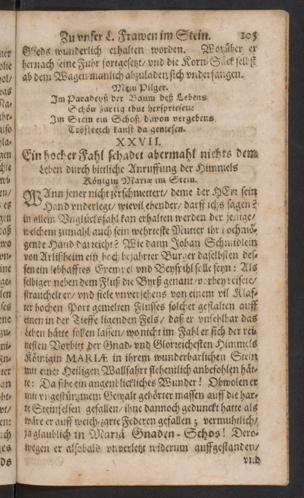 Zu vnser L. Frawen im Stein. 105
wunderlich erhalten worden. Worüber er
hernach seine Fuhr fortgesetzt / vnd die Korn-Säck selbst
ab dem Wagen manlich abzuladen sich vnderfangen.
Mein Pilger.
Im Paradeyß der Baum deß Lebens
Schön zweig thut
Im Stein ein Schoß / davon vergebens
Trostreich kanst du geniesen.
XXVII.
Ein hocher Fahl schadet abermahl nichts dem
Leben durch bittliche Anruffung der Himmels
Königin Mariæ im Stein.
WAnn jener nicht zerschmettert / deme der HErr sein
Hand vnderlegt / wie vil ehender / darff ichs sagen?
in allem Vnglücksfahl kan erhalten werden der jenige /
welchem zumahl auch sein wehrteste Mutter ihr
gende Hand darreicht? Wie dann Johan Schmidlein
von Arlißheim ein hoch bejahrter Burger daselbsten des-
sen ein lebhafftes Exempel vnd Beyspihl solle seyn: Als
selbiger neben dem Fluß die Byrß genant / vorbey reisete /
strauchelt er / vnd fiele vnversehens von einem vil Klaf-
ter hochen Port gemelten Flusses solcher gestalten auff
einen in der Tieffe ligenden Felß / daß er vnfehlbar das
Leben hätte sollen lassen / wo nicht im Fahl er sich der
Vorbitt der Gnad- vnd Glorreichesten Himmels
Königin MARIÆ in ihrem wunderbarlichen Stein
mit einer Heiligen Wallfahrt flehentlich anbefohlen hät-
te: Da sihe ein augenblickliches Wunder! Obwolen er
mit vngestümmem Gewalt gehörter massen auff die har-
te Steinfelsen gefallen / ihne dannoch geduncket hatte als
wäre er auff weich-zarte Federen gefallen; vermuhtlich /
ja glaublich in Mariä Gnaden-Schos! Dero-
wegen er alsobald vnverletzt widerum auffgestanden /
vnd